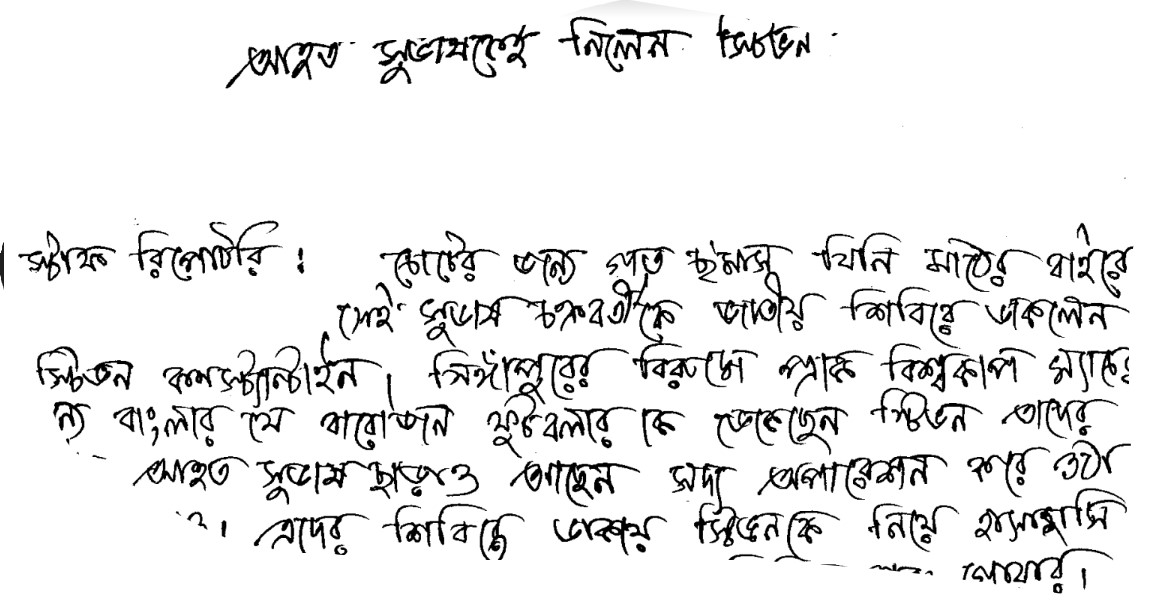 আহত সুভাষকেই নিলেন স্টিভন
স্টাফ রিপোর্টার : চোটের জন্য গত ছ'মাস যিনি মাঠের বাইরে
সেই সুভাষ চক্রবর্তীকে জাতীয় শিবিরে ডাকলেন
স্টিভন কনস্ট্যানটাইন। সিঙ্গাপুরের বিরুদ্ধে প্রাক বিশ্বকাপ ম্যাচের
ন্য বাংলার যে বারোজন ফুটবলার কে ডেকেছেন স্টিভন তাদের
আহত সুভাষ ছাড়াও আছেন সদ্য অপারেশন করে ওঠা
। এদের শিবিরে ডাকায় স্টিভনকে নিয়ে হাসাহাসি